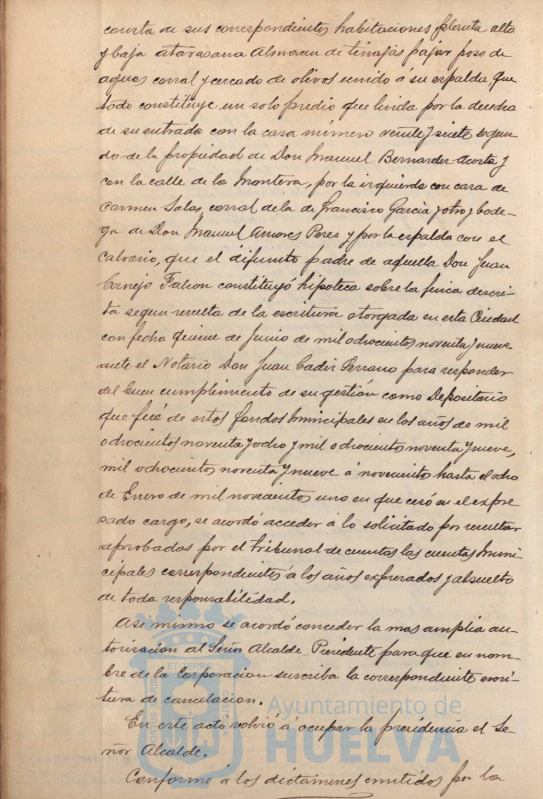 consta de sus correspondientes habitaciones planta alta
y baja atarazana Almacen de tinajas pajar pozo de
aguas corral y cercado de olivos unido á su espalda que
todo constituye un solo predio que linda por la derecha
de su entrada con la casa número veinte y siete segun-
do de la propiedad de Don Manuel Bernardez Acosta y
con la calle de la Montera, por la izquierda con casa de
Carmen Salas, corral de la de Francisco Garcia y otro y bode-
ga de Don Manuel Amores Perez y por la espalda con el
calvario, que el difunto padre de aquella Don Juan
Cornejo constituyó hipoteca sobre la finca descri-
ta segun resulta de la escritura otorgada en esta Ciudad
con fecha quince de Junio de mil ochocientos noventa y nueve
ante el Notario Don Juan Cadiz Serrano para responder
del buen cumplimiento de su gestión como Depositario
que fué de estos fondos Municipales en los años de mil
ochocientos noventa y ocho y mil ochocientos noventa y nueve,
mil ochocientos noventa y nueve á novecientos hasta el ocho
de Enero de mil novecientos uno en que cesó en el expre-
sado cargo, se acordó acceder á lo solicitado por resultar
aprobadas por el tribunal de cuentas las cuentas Muni-
cipales correspondientes á los años expresados y absuelto
de toda responsabilidad.
Asi mismo se acordó conceder la mas amplia au-
torizacion al Señor Alcalde Presidente para que en nom-
bre de la Corporacion suscriba la correspondiente escri-
tura de cancelacion.
En este acto volvió á ocupar la presidencia el Se-
ñor Alcalde.
Conforme á los dictámenes emitidos por la
Ayuntamiento de
HUELVA